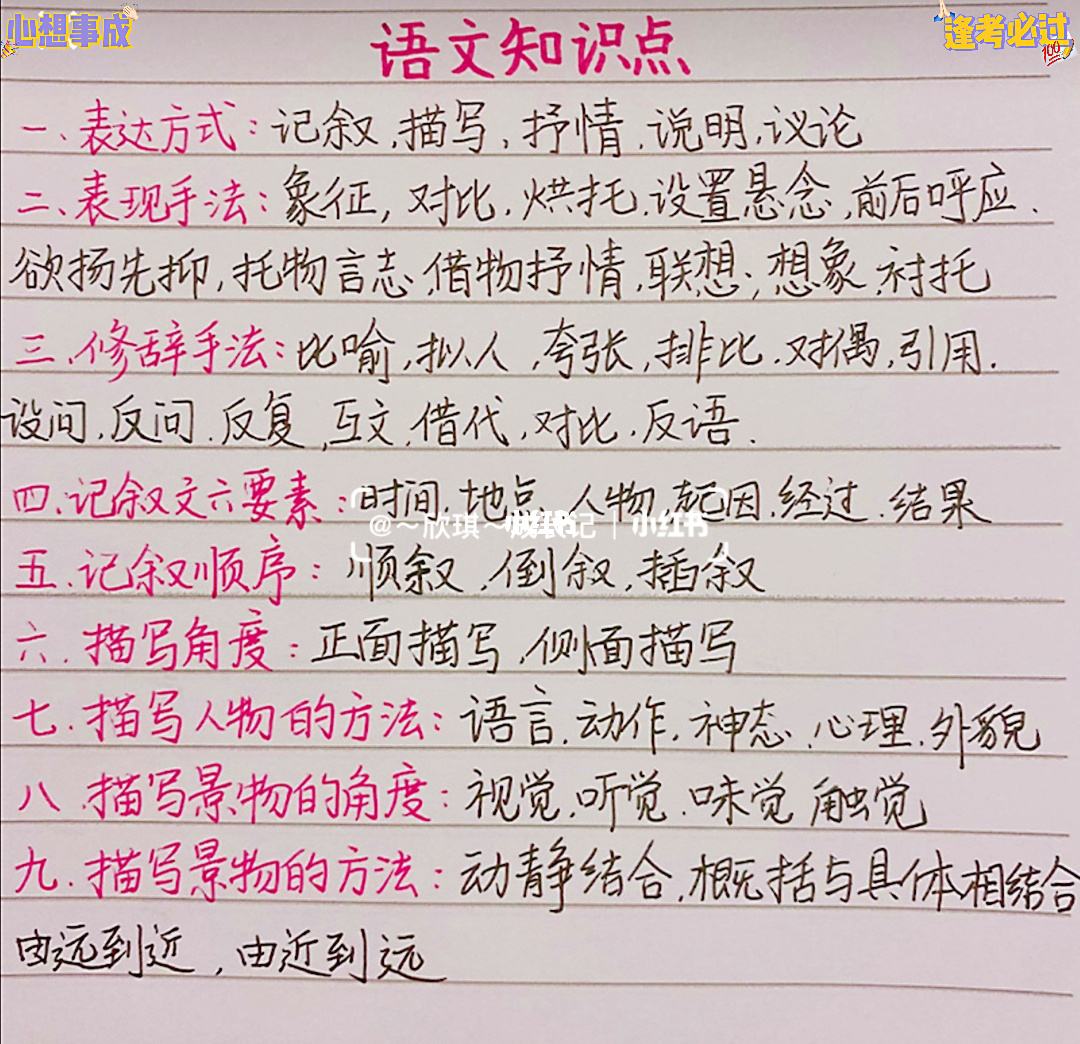 心想事成
逢考必过
语文知识点
一、表达方式：记叙，描写，抒情，说明，议论
二、表现手法：象征，对比，烘托，设置悬念，前后呼应、
欲扬先抑，托物言志，借物抒情，联想，想象，衬托
三、修辞手法：比喻，拟人，夸张，排比，对偶，引用，
设问，反问，反复，互文，借代，对比，反语．
四、记叙文六要素：时间，地点，人物，起因，经过，结果
@～欣琪～ 记｜小红书
五、记叙顺序：顺叙，倒叙，插叙
六、描写角度：正面描写，侧面描写
七、描写人物的方法：语言，动作，神态，心理，外貌
八、描写景物的角度：视觉，听觉，味觉 触觉
九、描写景物的方法：动静结合，概括与具体相结合
由远到近，由近到远